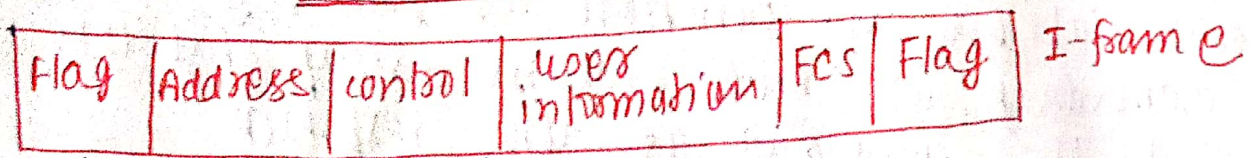 Flag Address control user information FCS Flag I-frame